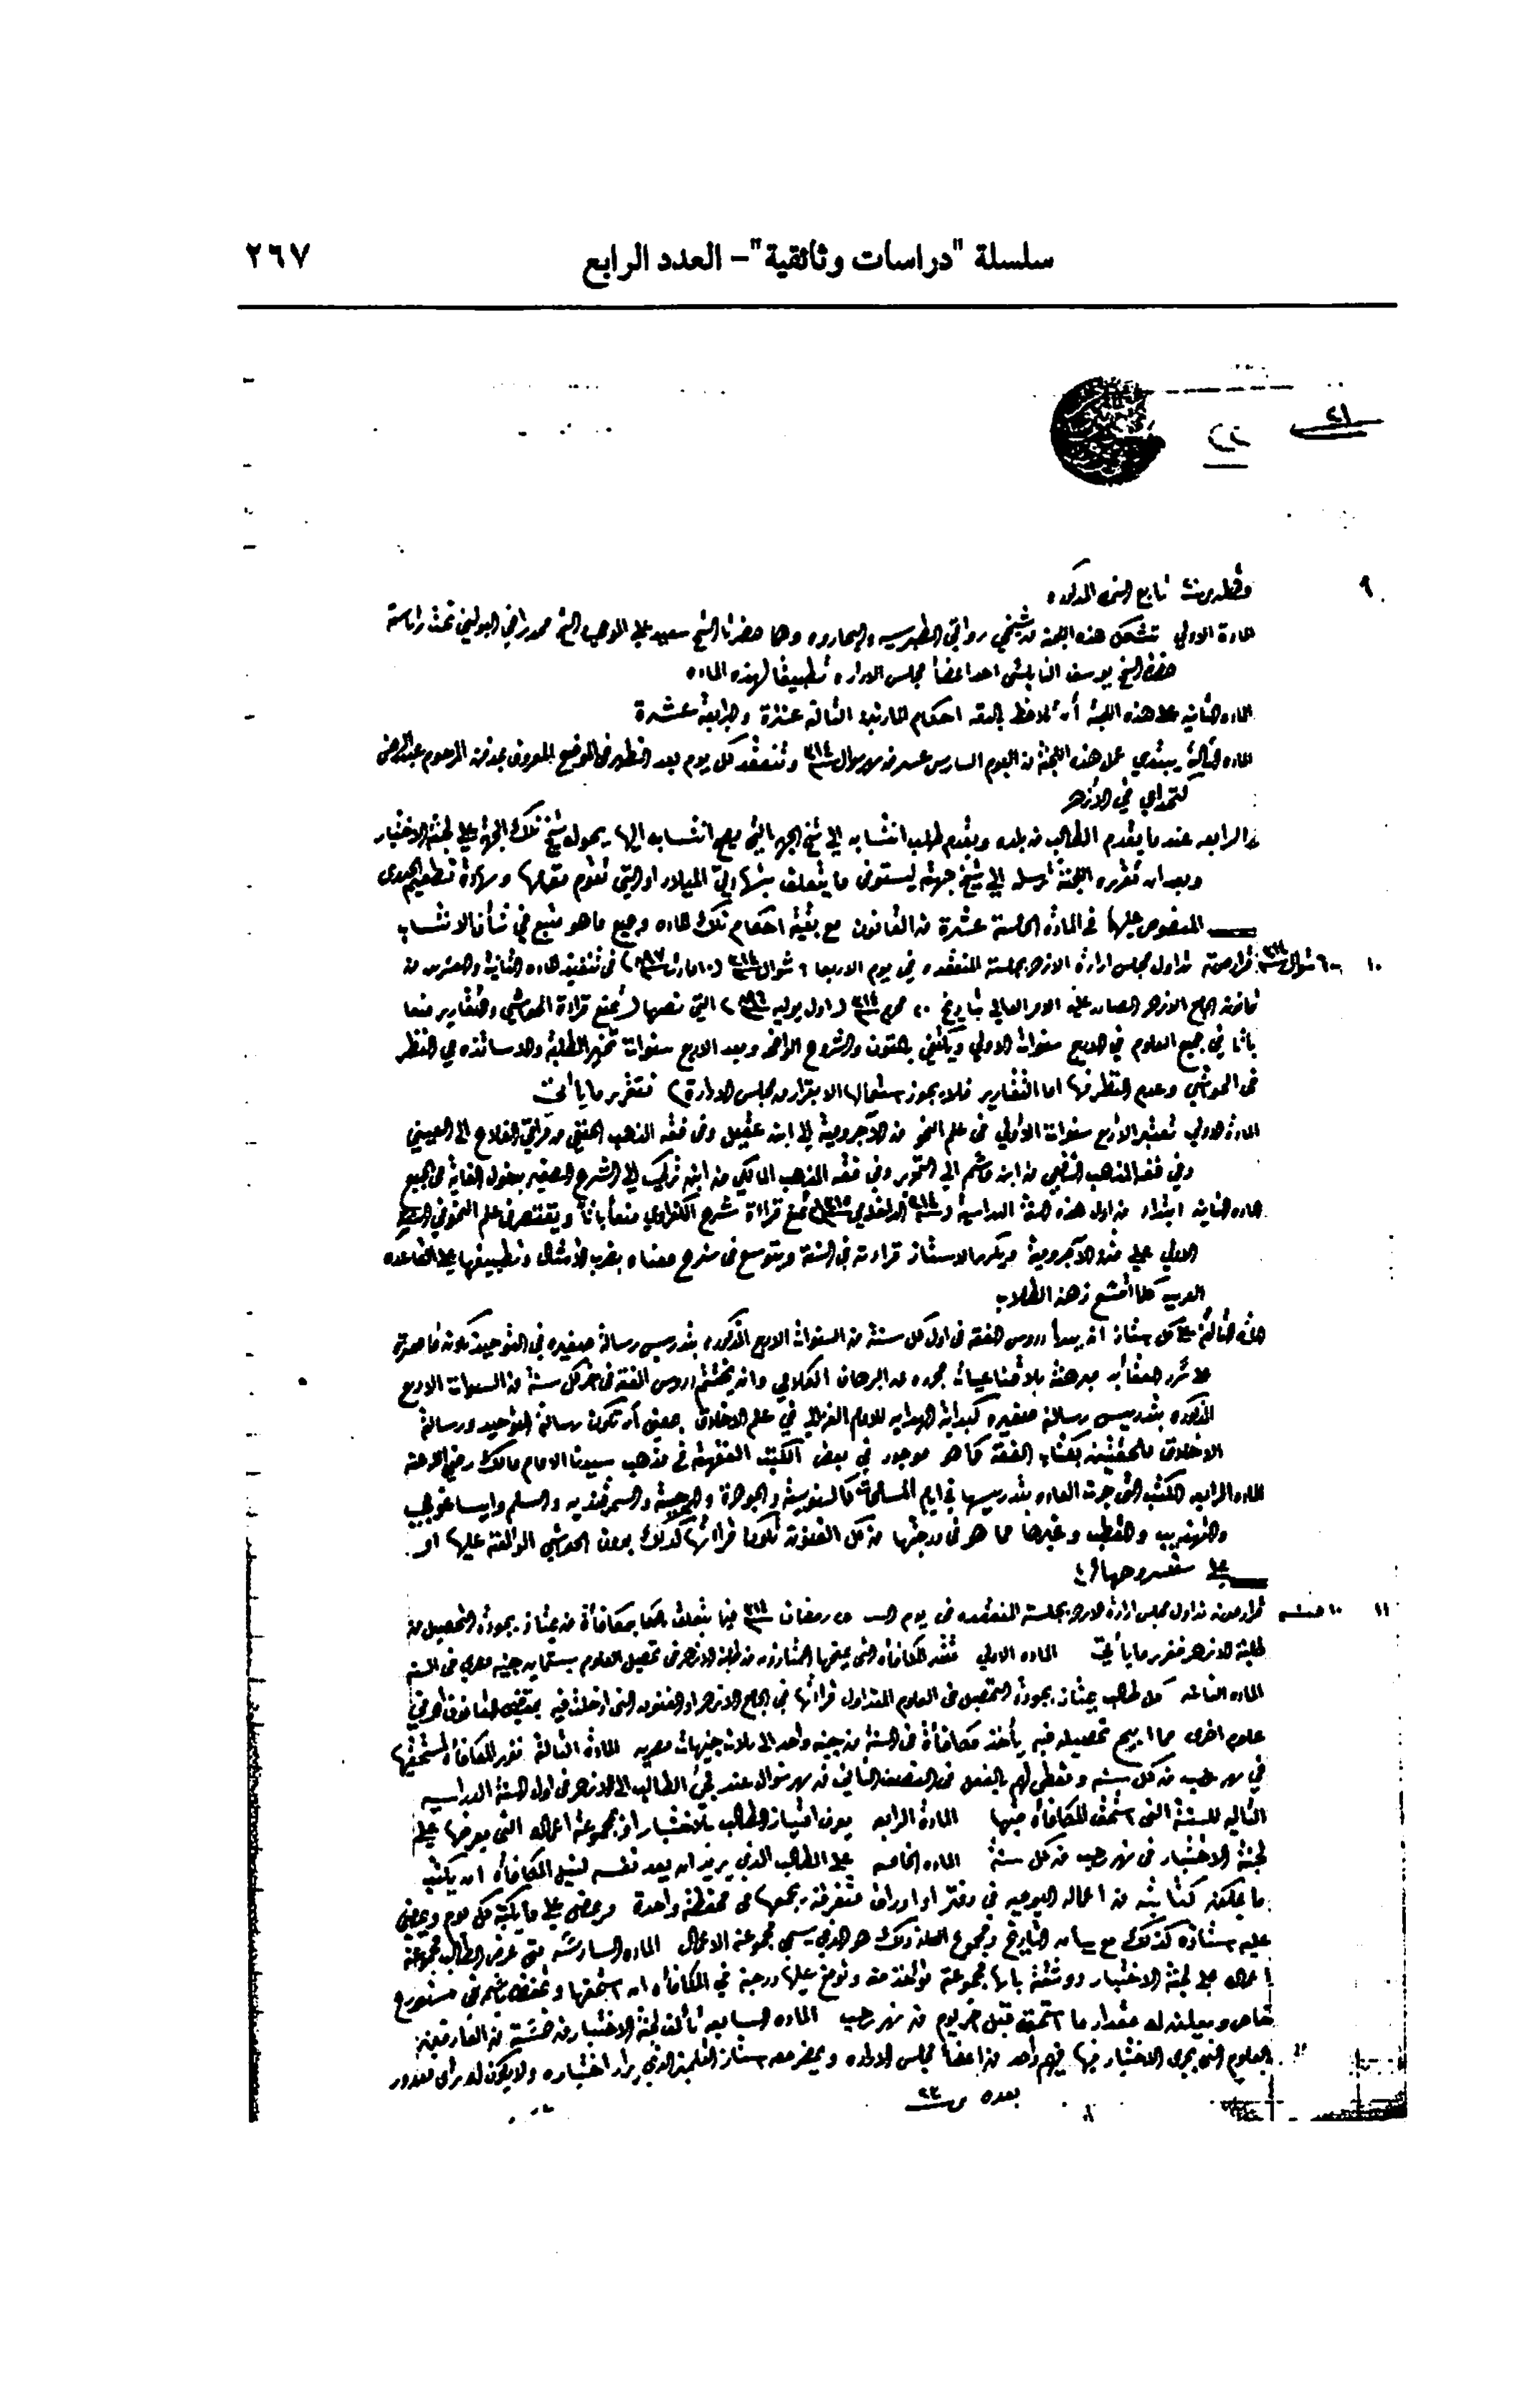 سلسلة "دراسات وثائقية" – العدد الرابع ٢٦٧
٩ تابع المذكوره
المادة الاولي تتشكل هذه اللجنة من شيخي رواقي الطبرسيه والبحاروه وهما حضرتا الشيخ سعيد علي الموجي والشيخ محمد راضي البوليني تحت رئاسة
حضرة الشيخ يوسف النابلسي احد اعضا مجلس الاداره تطبيقا لهذه الماده
الماده الثانيه على هذه اللجنة أن تلاحظ بالدقه احكام المادتين الثالثة عشرة والرابعة عشرة
الماده الثالثة يبتدي عمل هذه اللجنة من اليوم السادس عشر من شهر شوال سنة ٣١٤ وتنعقد كل يوم بعد الظهر في الموضع المعروف بمدفن المرحوم عبد الرحمن
كتخداي في الأزهر
الرابعه عندما يقدم الطالب من بلده ويقدم طلب انتسابه الي شيخ الجهة التي يصح انتسابه اليها يحوله شيخ تلك الجهة على لجنة الاختبار
وبعد ان تقرره اللجنة ترسله الي شيخ جهته ليستوفى ما يتعلق بشهادتي الميلاد او التي تقوم مقامها وشهادة تطعيم الجدرى
المنصوص عليها في المادة الخامسة عشرة من القانون مع بقية احكام تلك الماده وجميع ما هو متبع في شأن الانتساب
١٠ ٦ شوال سنة ٣١٤ قرار صورته تداول مجلس ادارة الازهر بجلسته المنعقده في يوم الاربعا ٦ شوال سنة ٣١٤ (١٠ مارث سنة ٨٩٧) في تنفيذ الماده الثانية والعشرين من
قانون الجامع الازهر الصادر عليه الامر العالي بتاريخ ٢٠ محرم سنة ٣١٤ (اول يوليه سنة ٨٩٦) التي نصها (تمنع قراءة الحواشي والتقارير منعا
باتا في جميع العلوم في الاربع سنوات الاولي ويكتفي بالمتون والشروح الواضحه وبعد الاربع سنوات تخير الطلبة والاساتذه في النظر
في الحواشي وعدم النظر فيها اما التقارير فلا يجوز استعمالها الا بقرار من مجلس الادارة) فتقرر ما يأتي
المادة الاولي تعتبر الاربع سنوات الأولي في علم النحو من الآجرومية الي ابن عقيل وفى فقه المذهب الحنفي من مراقي الفلاح الى العيني
وفي فقه المذهب الشافعي من ابن قاسم الي التحرير وفي فقه المذهب المالكي من ابن تركي الي الشرح الصغير بدخول الغاية في الجميع
الماده الثانيه ابتداء من اول هذه السنة الدراسية تمنع قراءة شرح الكفراوي منعا باتا ويقتصر في علم النحو في السنة
الاولي على متن الآجرومية ويكرر الاستاذ قراءته في السنة ويتوسع في شرح معناه بضرب الأمثال وتطبيقها على القاعده
العربيه كلما اتسع ذهن الطلاب
الماده الثالثة على كل استاذ ان يبدأ دروس الفقه في اول كل سنة من السنوات الاربع المذكوره بتدريس رسالة صغيره في التوحيد تكون قاصرة
على سرد العقائد مبرهنة بالاقناعيات مجرده عن البرهان الكلامي وان يختتم دروس الفقه في اخر كل سنة من السنوات الاربع
المذكوره بتدريس رسالة صغيره كبداية الهدايه للامام الغزالي في علم الاخلاق بمعنى أن تكون رسالة التوحيد ورسالة
الاخلاق ملحقتين بكتاب الفقه كما هو موجود في بعض الكتب الفقهية في مذهب سيدنا الامام مالك رضي الله عنه
الماده الرابعه الكتب التي جرت العاده بتدريسها في ايام المسامحات كالسنوسية والجوهرة والرحبية والسمرقنديه والسلم وايساغوجي
والتهذيب والقطب وغيرها مما هو في درجتها من كل الفنون تكون قرائتها كذلك بدون الحواشي المؤلفة عليها او
على شروحها
١١ ١٠ منه قرار صورته تداول مجلس ادارة الازهر بجلسته المنعقده في يوم السبت ٢٥ رمضان سنة ٣١٤ فيما يتعلق بمكافأة من يمتاز بجودة التحصيل من
طلبة الازهر فتقرر ما يأتي الماده الاولي تقدر المكافأه التى يمنحها الممتازون من طلبة الازهر فى تحصيل العلوم بستمايه جنيه مصري في السنه
الماده الثانيه كل طالب يمتاز بجودة التحصيل في العلوم المتداول قرائتها في الجامع الازهر او الفنون التى ادخلت فيه بمقتضى القانون او في
علوم اخرى مما ابيح تحصيله فيه يأخذ مكافأة في السنة من جنيه واحد الى ثلاث جنيهات مصريه المادة الثالثة تقرر المكافأة لمستحقيها
في شهر رجب من كل سنه وتعطى لهم بالفعل في النصف الثاني من شهر شوال عند مجئ الطالب الى الازهر في اول السنة الدراسيه
التاليه للسنة التى استحق المكافأه فيها المادة الرابعه يعرف امتياز الطالب بالاختبار او بمجموعة اعماله التي يعرضها على
لجنة الاختبار في شهر رجب من كل سنة الماده الخامسه على الطالب الذي يريد ان يعد نفسه لنيل المكافأه ان يكتب
ما يمكنه كتابته من اعماله اليوميه في دفتر او اوراق متفرقة يجمعها في محفظة واحدة ويمضى على ما يكتبه كل يوم ويمضي
عليه استاذه كذلك مع بيان التاريخ ومجموع كل ذلك هو الذي يسمى مجموعة الاعمال الماده السادسه متى عرض الطالب مجموعة
اعماله على لجنة الاختبار ووثقت بانها مجموعة تؤخذ منه وتوضع عليها درجة في المكافأه ان استحقها وتحفظ باسمه في مستودع
خاص ويعلن له مقدار ما استحق قبل اخر يوم من شهر رجب الماده السابعه تتألف لجنة الاختبار من خمسة من العارفين
بالعلوم التى يجري الاختبار فيها فيهم واحد من اعضا مجلس الاداره ويحضر معه استاذ التلميذ الذي يراد اختباره ولا يكون له رأي معدود
بعده ص ٢٢